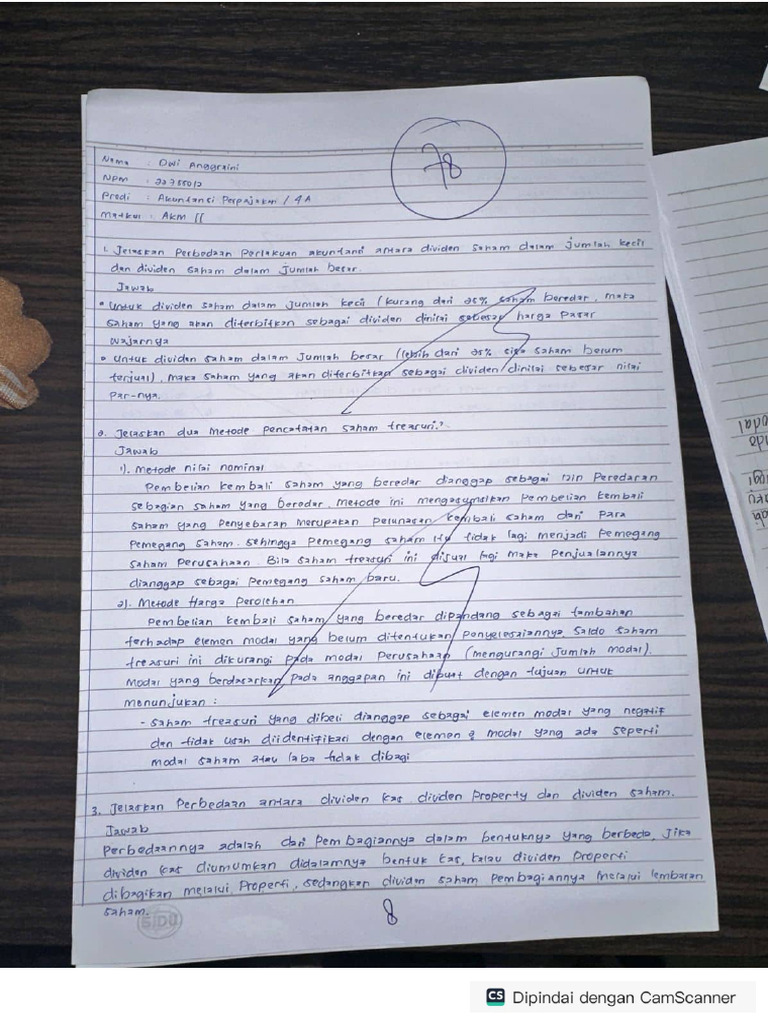 Nama : Dwi Anggraini
78
NPM : 22755012
Prodi : Akuntansi Perpajakan / 4A
Matkul : AKM II
1. Jelaskan Perbedaan Perlakuan akuntansi antara dividen saham dalam jumlah kecil
dan dividen saham dalam jumlah besar.
Jawab
• Untuk dividen saham dalam jumlah kecil (kurang dari 25% saham beredar, maka
saham yang akan diterbitkan sebagai dividen dinilai sebesar harga pasar
wajarnya
• Untuk dividen saham dalam jumlah besar (lebih dari 25% sisa saham belum
terjual), maka saham yang akan diterbitkan sebagai dividen dinilai sebesar nilai
par-nya.
2. Jelaskan dua metode pencatatan saham treasuri.?
Jawab
1). Metode nilai nominal
Pembelian kembali saham yang beredar dianggap sebagai izin Peredaran
sebagian saham yang beredar. Metode ini mengasumsikan Pembelian kembali
saham yang Penyebaran merupakan pelunasan kembali saham dari para
Pemegang saham. sehingga Pemegang saham itu tidak lagi menjadi Pemegang
saham Perusahaan. Bila saham treasuri ini dijual lagi maka Penjualannya
dianggap sebagai Pemegang saham baru.
2). Metode Harga Perolehan
Pembelian kembali saham yang beredar dipandang sebagai tambahan
terhadap elemen modal yang belum ditentukan penyelesaiannya saldo saham
treasuri ini dikurangi pada modal Perusahaan (mengurangi jumlah modal).
Modal yang berdasarkan pada anggapan ini dibuat dengan tujuan untuk
menunjukan :
- saham treasuri yang dibeli dianggap sebagai elemen modal yang negatif
dan tidak usah diidentifikasi dengan elemen 2 modal yang ada seperti
modal saham atau laba tidak dibagi
3. Jelaskan Perbedaan antara dividen kas, dividen Property dan dividen saham.
Jawab
Perbedaannya adalah dari Pembagiannya dalam bentuknya yang berbeda, Jika
dividen kas diumumkan didalamnya bentuk kas, kalau dividen Properti
dibagikan melalui Properti, sedangkan dividen saham Pembagiannya melalui lembaran
saham.
8
SIDU
CS Dipindai dengan CamScanner